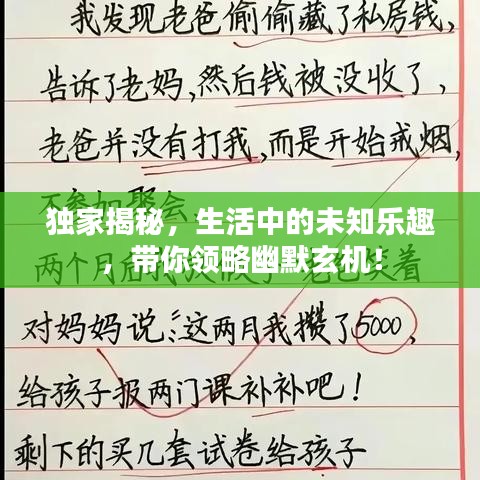 我发现老爸偷偷藏了私房钱,
告诉了老妈,然后钱被没收了,
老爸并没有打我,而是开始戒烟,
不参加聚会
独家揭秘，生活中的未知乐趣
，带你领略幽默玄机！
两个月后
对妈妈说:“这两月我攒了5000,
给孩子报两门课补补吧!
剩下的买几套试卷给孩子